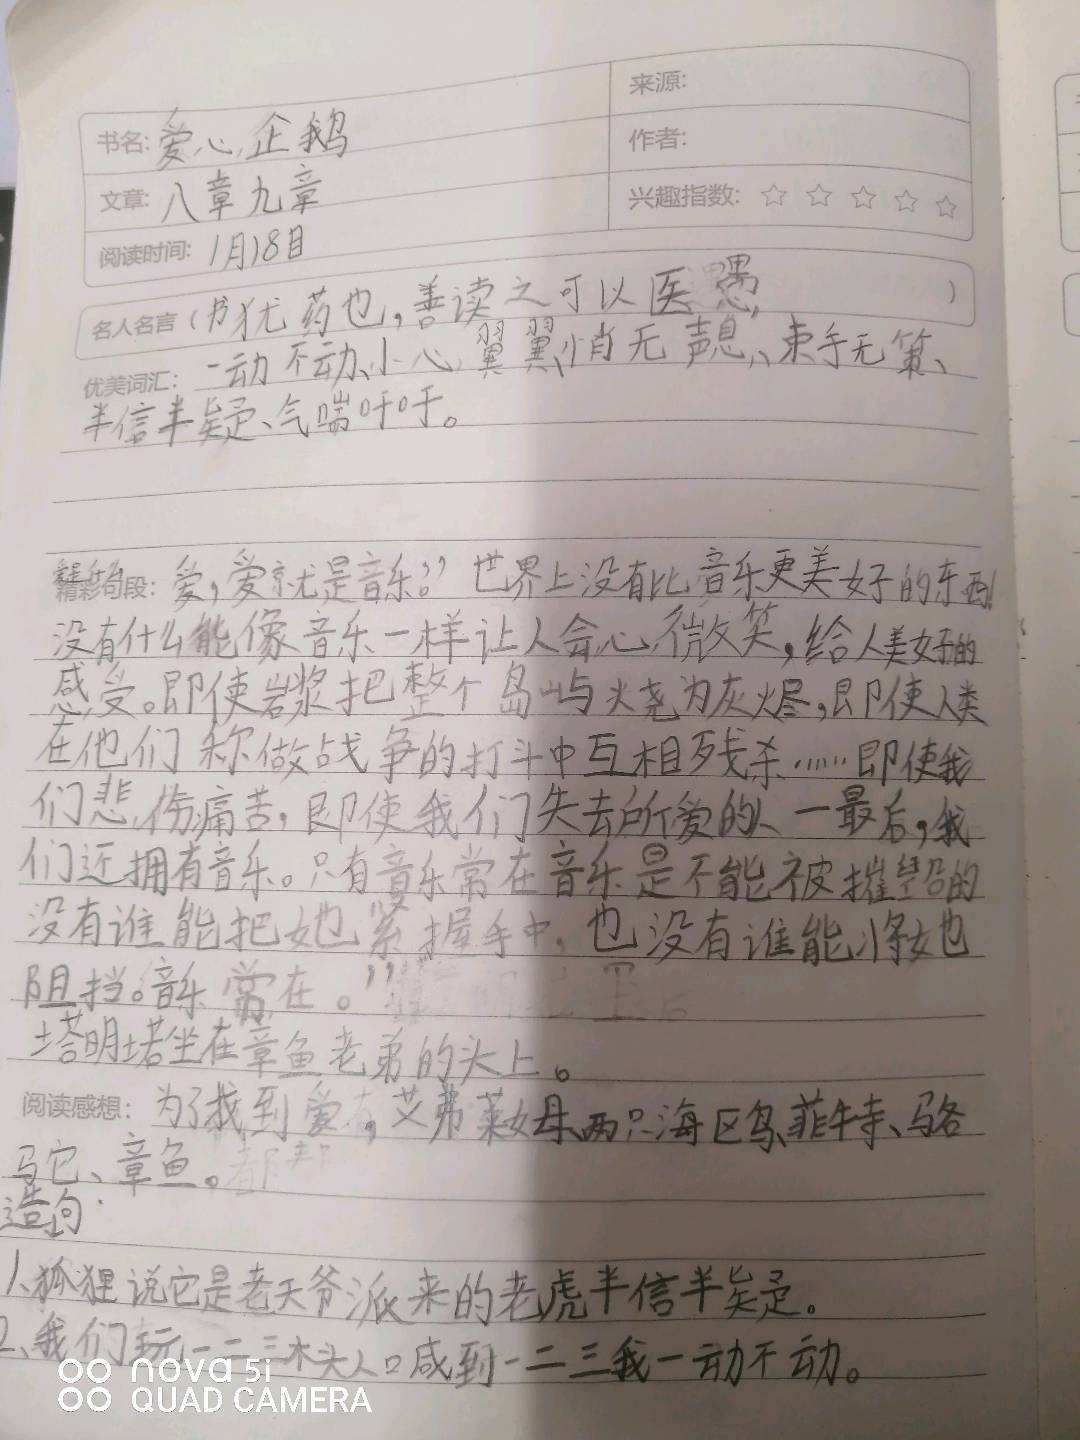 书名: 爱心企鹅
来源:
作者:
文章: 八章九章
兴趣指数: ☆ ☆ ☆ ☆ ☆
阅读时间: 1月18日
名人名言（书犹药也，善读之可以医愚）
优美词汇: 一动不动、小心翼翼、悄无声息、束手无策、
半信半疑、气喘吁吁。
精彩句段: 爱，爱就是音乐？”世界上没有比音乐更美好的东西！
没有什么能像音乐一样让人会心微笑，给人美好的
感受。即使岩浆把整个岛屿火烧为灰烬，即使人类
在他们称做战争的打斗中互相残杀……即使我
们悲伤痛苦，即使我们失去所爱的人一最后，我
们还拥有音乐。只有音乐常在音乐是不能被摧毁的
没有谁能把她紧握手中，也没有谁能将她
阻挡。音乐常在。”
塔明坐在章鱼老弟的头上。
阅读感想: 为了找到爱，艾弗莱女母、两只海区鸟、菲牛寺、马各
马它、章鱼。
造句
1、狐狸说它是老天爷派来的老虎半信半疑。
2、我们玩一二三木头人口咸到一二三我一动不动。
nova 5i
QUAD CAMERA